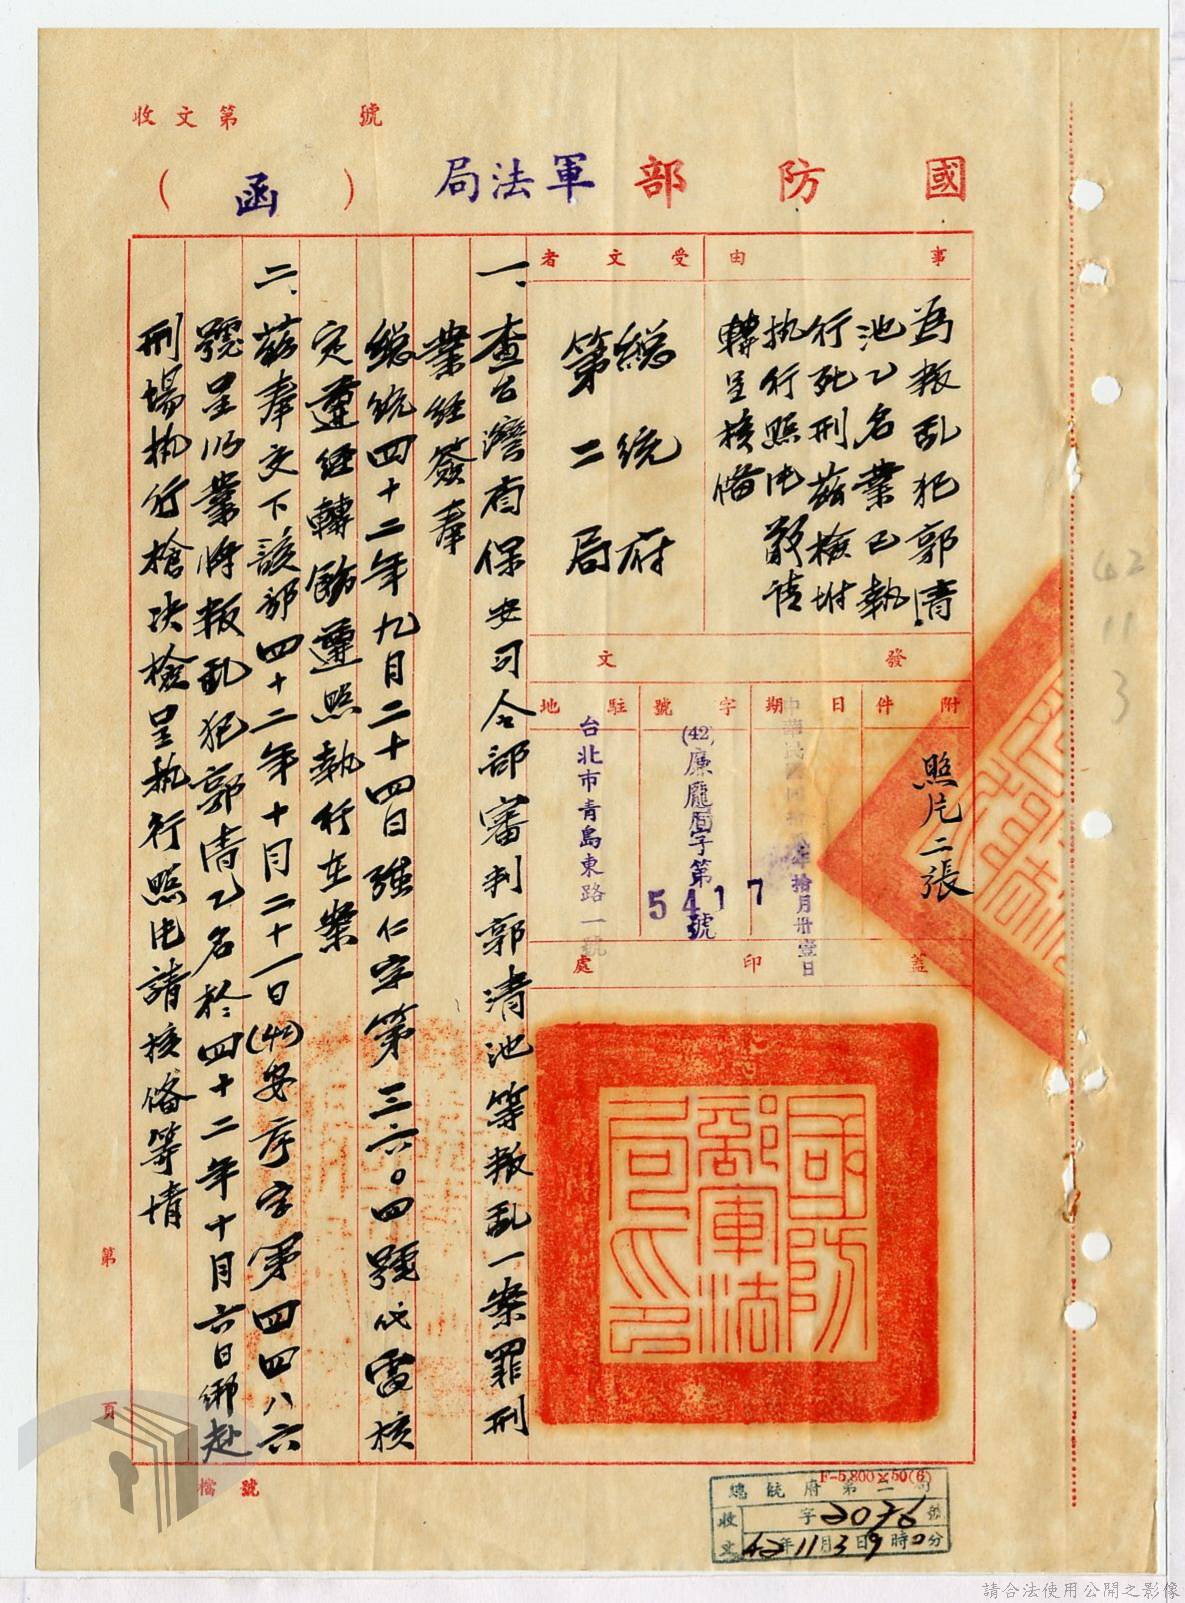 收文第　　號
國防部軍法局（函）
事由
為叛亂犯郭清
池乙名業已執
行死刑茲檢附
執行照片敬請
轉呈核備
受文者
總統府
第二局
發文
附件
照片二張
日期
中華民國四拾貳年拾月卅壹日
字號
(42)廉龐
字第5417號
駐地
台北市青島東路一號
蓋印處
國防部軍法局印
一、查台灣省保安司令部審判郭清池等叛亂一案罪刑
業經簽奉
總統四十二年九月二十四日強仁字第三六〇四號代電核
定遵經轉飭遵照執行在案
二、茲奉交下該部四十二年十月二十一日(42)安序字第四四八六
號呈以業將叛亂犯郭清乙名於四十二年十月六日綁赴
刑場執行槍決檢呈執行照片請核備等情
第　頁
檔號
F-5,800×50(6)
總統府第二局
收文
字2076號
42年11月3日9時0分
42
11
3
請合法使用公開之影像